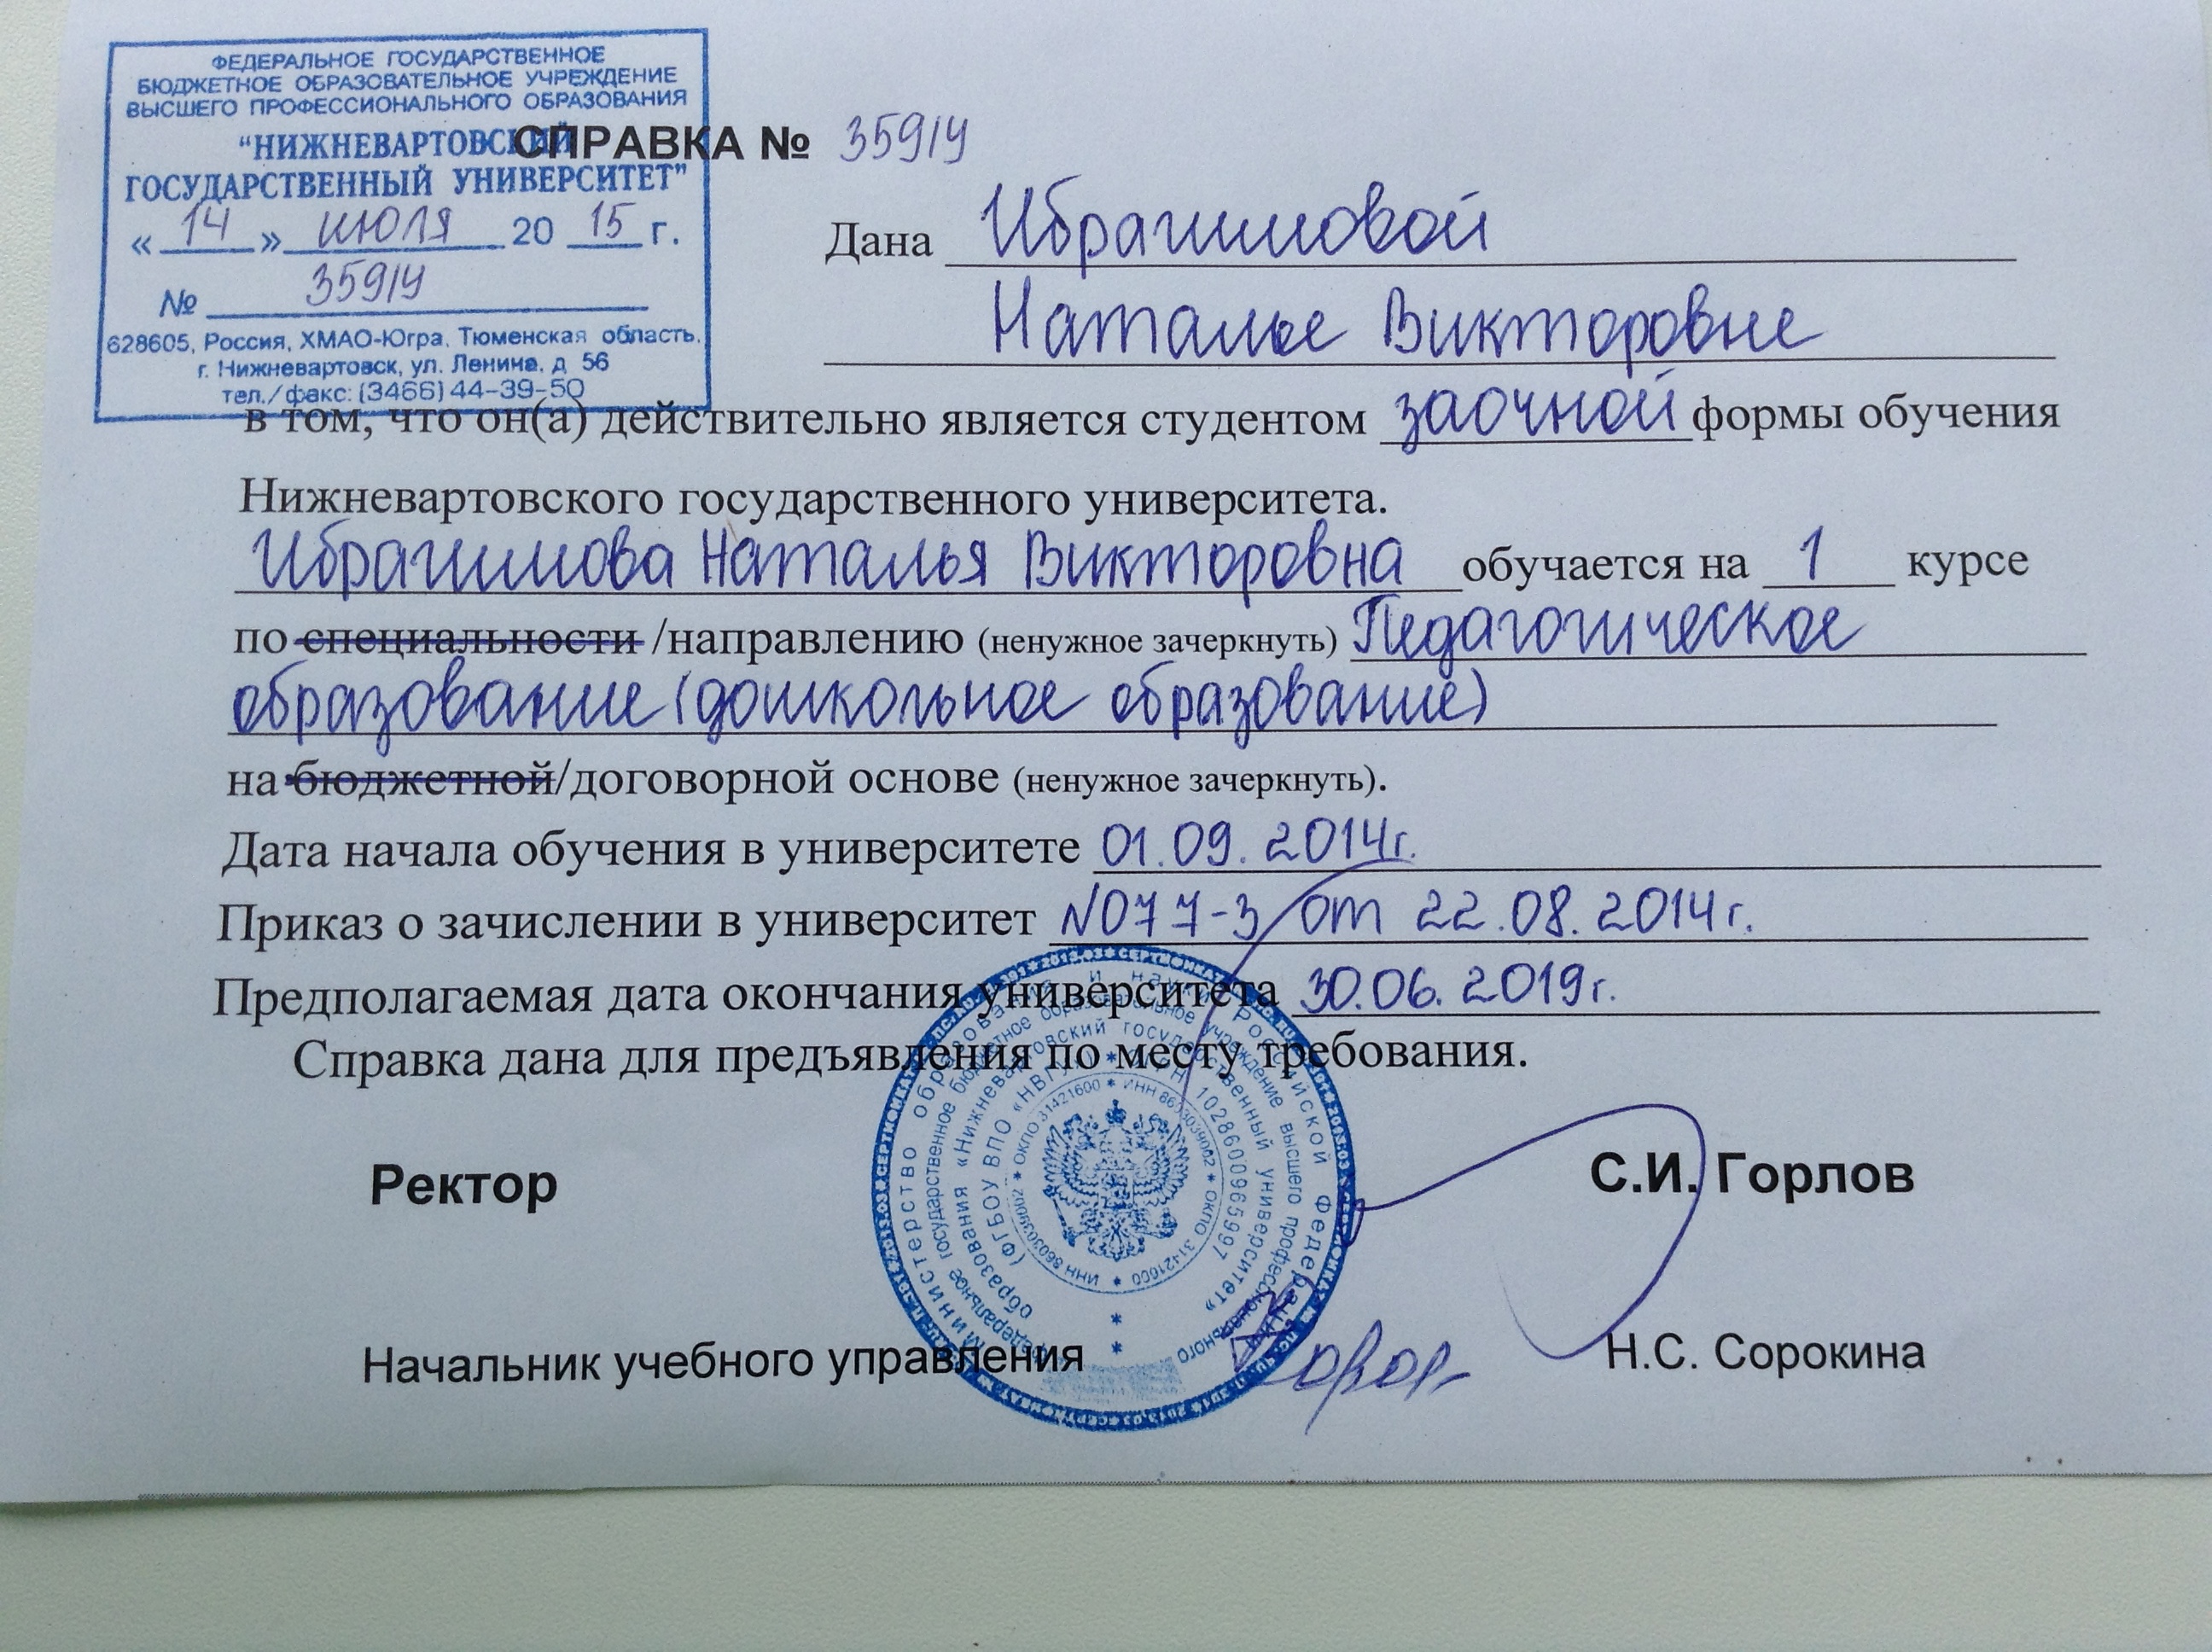 ФЕДЕРАЛЬНОЕ ГОСУДАРСТВЕННОЕ
БЮДЖЕТНОЕ ОБРАЗОВАТЕЛЬНОЕ УЧРЕЖДЕНИЕ
ВЫСШЕГО ПРОФЕССИОНАЛЬНОГО ОБРАЗОВАНИЯ
"НИЖНЕВАРТОВСКИЙ
ГОСУДАРСТВЕННЫЙ УНИВЕРСИТЕТ"
« 14 » июля 20 15 г.
№ 359/у
628605, Россия, ХМАО-Югра, Тюменская область,
г. Нижневартовск, ул. Ленина, д 56
тел./факс: (3466) 44-39-50
СПРАВКА № 359/у
Дана Ибрагимовой
Наталье Викторовне
в том, что он(а) действительно является студентом заочной формы обучения
Нижневартовского государственного университета.
Ибрагимова Наталья Викторовна обучается на 1 курсе
по специальности /направлению (ненужное зачеркнуть) Педагогическое
образование (дошкольное образование)
на бюджетной/договорной основе (ненужное зачеркнуть).
Дата начала обучения в университете 01.09.2014г.
Приказ о зачислении в университет №077-з от 22.08.2014г.
Предполагаемая дата окончания университета 30.06.2019г.
Справка дана для предъявления по месту требования.
Министерство образования и науки Российской Федерации
федеральное государственное бюджетное образовательное учреждение высшего профессионального
образования «Нижневартовский государственный университет»
(ФГБОУ ВПО «НВГУ») * ОГРН 1028600965997
* ИНН 8603039002 * ОКПО 31421600 * ИНН 8603039002 * ОКПО 31421600
Ректор С.И. Горлов
Начальник учебного управления Н.С. Сорокина